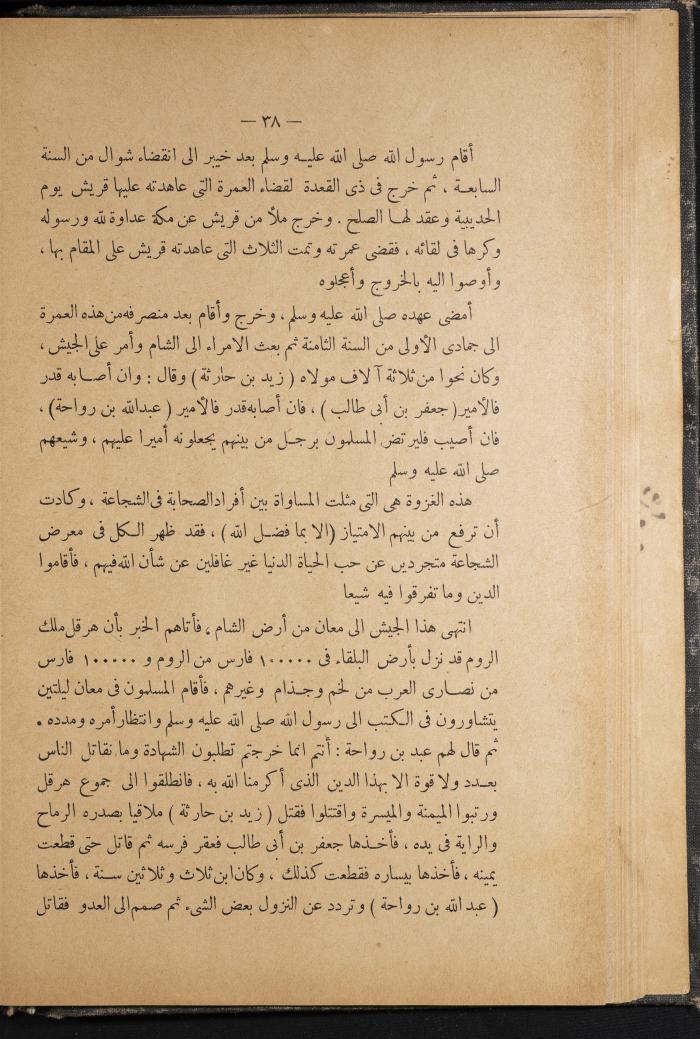 — ٣٨ —
أقام رسول الله صلى الله عليه وسلم بعد خيبر الى انقضاء شوال من السنة
السابعة ، ثم خرج فى ذى القعدة لقضاء العمرة التى عاهدته عليها قريش يوم
الحديبية وعقد لها الصلح . وخرج ملأ من قريش عن مكة عداوة لله ورسوله
وكرها فى لقائه ، فقضى عمرته وتمت الثلاث التى عاهدته قريش على المقام بها ،
وأوصوا اليه بالخروج وأعجلوه
أمضى عهده صلى الله عليه وسلم ، وخرج وأقام بعد منصرفه من هذه العمرة
الى جمادى الأولى من السنة الثامنة ثم بعث الامراء الى الشام وأمر على الجيش ،
وكان نحوا من ثلاثة آلاف مولاه ( زيد بن حارثة ) وقال : وان أصابه قدر
فالأمير ( جعفر بن أبى طالب ) ، فان أصابه قدر فالأمير ( عبدالله بن رواحة ) ،
فان أصيب فليرتض المسلمون برجل من بينهم يجعلونه أميرا عليهم ، وشيعهم
صلى الله عليه وسلم
هذه الغزوة هى التى مثلت المساواة بين أفراد الصحابة فى الشجاعة ، وكادت
أن ترفع من بينهم الامتياز ( الا بما فضل الله ) ، فقد ظهر الكل فى معرض
الشجاعة متجردين عن حب الحياة الدنيا غير غافلين عن شأن الله فيهم ، فأقاموا
الدين وما تفرقوا فيه شيعا
انتهى هذا الجيش الى معان من أرض الشام ، فأتاهم الخبر بأن هرقل ملك
الروم قد نزل بأرض البلقاء فى ١٠٠٠٠٠ فارس من الروم و ١٠٠٠٠٠ فارس
من نصارى العرب من لخم وجذام وغيرهم ، فأقام المسلمون فى معان ليلتين
يتشاورون فى الكتب الى رسول الله صلى الله عليه وسلم وانتظار أمره ومدده .
ثم قال لهم عبد بن رواحة : أنتم انما خرجتم تطلبون الشهادة وما نقاتل الناس
بعدد ولا قوة الا بهذا الدين الذى أكرمنا الله به ، فانطلقوا الى جموع هرقل
ورتبوا الميمنة والميسرة واقتتلوا فقتل ( زيد بن حارثة ) ملاقيا بصدره الرماح
والراية فى يده ، فأخذها جعفر بن أبى طالب فعقر فرسه ثم قاتل حتى قطعت
يمينه ، فأخذها بيساره فقطعت كذلك ، وكان ابن ثلاث وثلاثين سنة ، فأخذها
( عبد الله بن رواحة ) وتردد عن النزول بعض الشىء ثم صمم الى العدو فقاتل